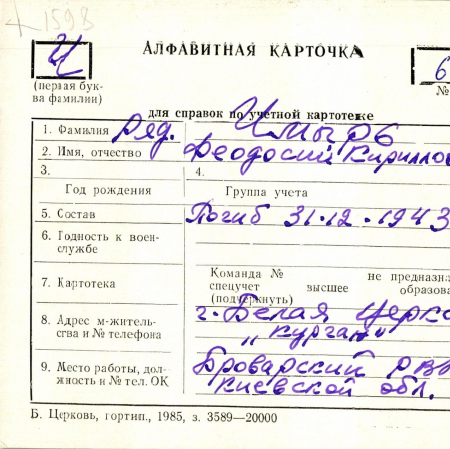 1598
АЛФАВИТНАЯ КАРТОЧКА
И
6
(первая бук-
ва фамилии)
№
для справок по учетной картотеке
1. Фамилия Ряд.
2. Имя, отчество Феодосий Кирилло
3.
4.
Год рождения
Группа учета
5. Состав Погиб 31.12.1943
6. Годность к воен-
службе
7. Картотека
Команда № не предназна
спецучет высшее образова
(подчеркнуть)
8. Адрес м-житель-
ства и № телефона
г. Белая Церко
„Курган"
9. Место работы, дол-
жность и № тел. ОК
Броварский РВ
Киевской обл.
Б. Церковь, гортип., 1985, з. 3589—20000